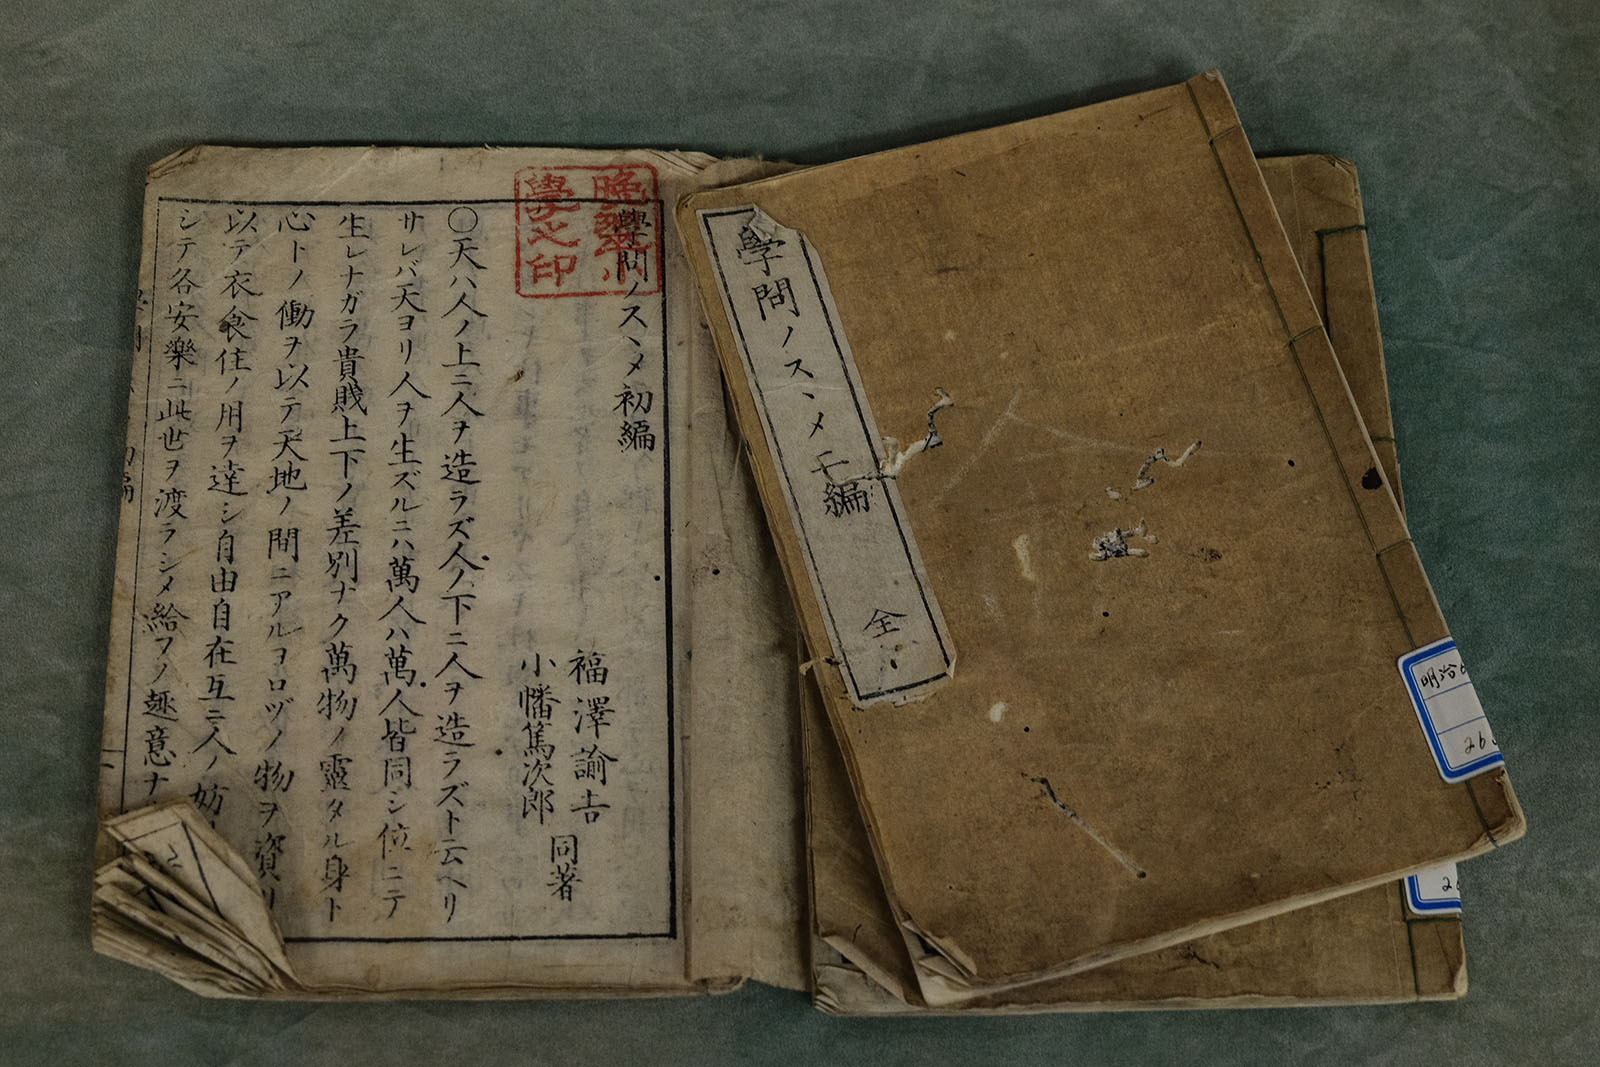 學問ノスヽメ 初編
福澤諭吉
小幡篤次郎
同著
〇天ハ人ノ上ニ人ヲ造ラズ人ノ下ニ人ヲ造ラズト云ヘリ
サレバ天ヨリ人ヲ生ズルニハ萬人ハ萬人皆同シ位ニテ
生レナガラ貴賤上下ノ差別ナク萬物ノ靈タル身ト
心トノ働ヲ以テ天地ノ間ニアルヨロヅノ物ヲ資リ
以テ衣食住ノ用ヲ達シ自由自在互ニ人ノ妨
シテ各安樂ニ此世ヲ渡ラシメ給フノ趣意ナ
學之印
學問ノスヽメ 編 全
明治
26